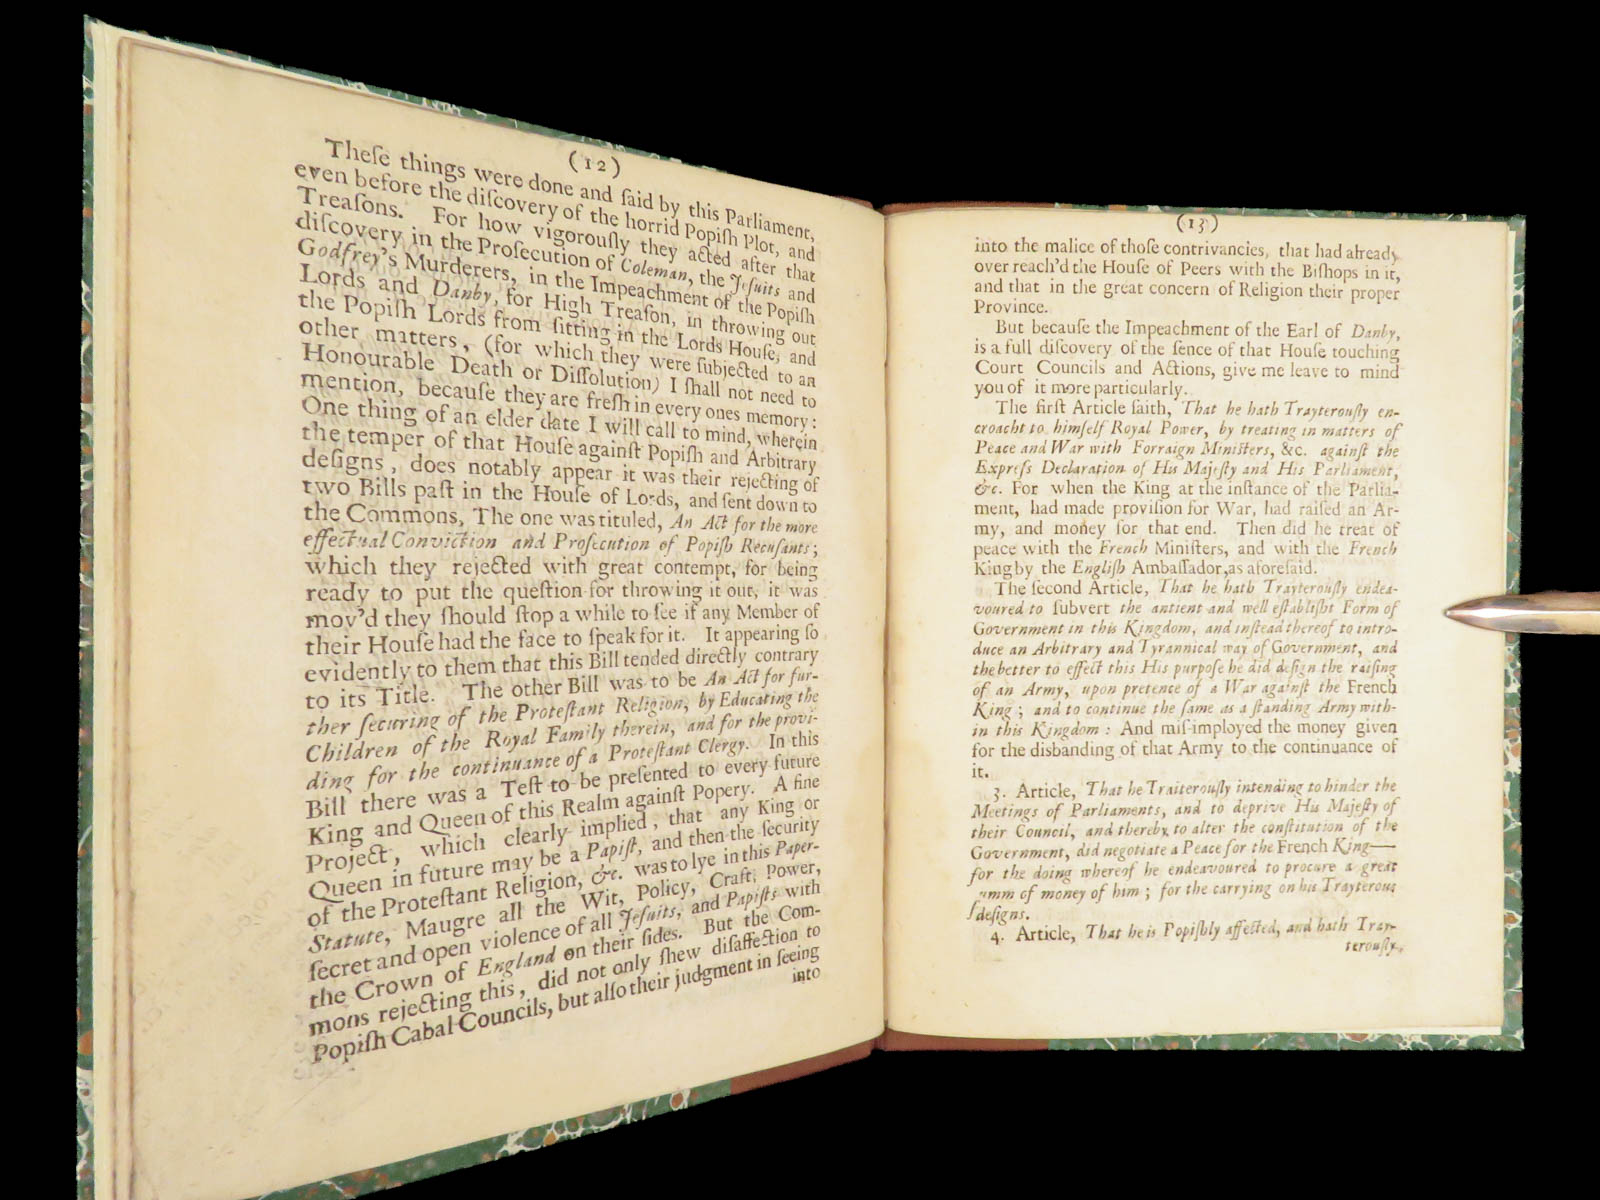 (12)
Theſe things were done and ſaid by this Parliament,
even before the diſcovery of the horrid Popiſh Plot, and
Treaſons. For how vigorouſly they acted after that
diſcovery in the Proſecution of Coleman, the Jeſuits and
Godfrey's Murderers, in the Impeachment of the Popiſh
Lords and Danby, for High Treaſon, in throwing out
the Popiſh Lords from ſitting in the Lords Houſe, and
other matters, (for which they were ſubjected to an
Honourable Death or Diſſolution) I ſhall not need to
mention, becauſe they are freſh in every ones memory:
One thing of an elder date I will call to mind, wherein
the temper of that Houſe againſt Popiſh and Arbitrary
deſigns, does notably appear it was their rejecting of
two Bills paſt in the Houſe of Lords, and ſent down to
the Commons, The one was tituled, An Act for the more
effectual Conviction and Proſecution of Popiſh Recuſants;
which they rejected with great contempt, for being
ready to put the queſtion for throwing it out, it was
mov'd they ſhould ſtop a while to ſee if any Member of
their Houſe had the face to ſpeak for it. It appearing ſo
evidently to them that this Bill tended directly contrary
to its Title. The other Bill was to be An Act for fur-
ther ſecuring of the Proteſtant Religion, by Educating the
Children of the Royal Family therein, and for the provi-
ding for the continuance of a Proteſtant Clergy. In this
Bill there was a Teſt to be preſented to every future
King and Queen of this Realm againſt Popery. A fine
Project, which clearly implied, that any King or
Queen in future may be a Papiſt, and then the ſecurity
of the Proteſtant Religion, &c. was to lye in this Paper-
Statute, Maugre all the Wit, Policy, Craft, Power,
ſecret and open violence of all Jeſuits, and Papiſts with
the Crown of England on their ſides. But the Com-
mons rejecting this, did not only ſhew diſaffection to
Popiſh Cabal-Councils, but alſo their judgment in ſeeing
into
(13)
into the malice of thoſe contrivancies, that had already
over reach'd the Houſe of Peers with the Biſhops in it,
and that in the great concern of Religion their proper
Province.
But becauſe the Impeachment of the Earl of Danby,
is a full diſcovery of the ſence of that Houſe touching
Court Councils and Actions, give me leave to mind
you of it more particularly.
The firſt Article ſaith, That he hath Trayterouſly en-
croacht to himſelf Royal Power, by treating in matters of
Peace and War with Forraign Miniſters, &c. againſt the
Expreſs Declaration of His Majeſty and His Parliament,
&c. For when the King at the inſtance of the Parlia-
ment, had made proviſion for War, had raiſed an Ar-
my, and money for that end. Then did he treat of
peace with the French Miniſters, and with the French
King by the Engliſh Ambaſſador, as aforeſaid.
The ſecond Article, That he hath Trayterouſly endea-
voured to ſubvert the antient and well eſtabliſht Form of
Government in this Kingdom, and inſtead thereof to intro-
duce an Arbitrary and Tyrannical way of Government, and
the better to effect this His purpoſe he did deſign the raiſing
of an Army, upon pretence of a War againſt the French
King; and to continue the ſame as a ſtanding Army with-
in this Kingdom: And miſ-imployed the money given
for the disbanding of that Army to the continuance of
it.
3. Article, That he Traiterouſly intending to hinder the
Meetings of Parliaments, and to deprive His Majeſty of
their Council, and thereby to alter the conſtitution of the
Government, did negotiate a Peace for the French King—
for the doing whereof he endeavoured to procure a great
umm of money of him; for the carrying on his Trayterous
ſdeſigns.
4. Article, That he is Popiſhly affected, and hath Tray-
terouſly